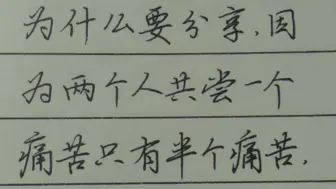 为什么要分享,因
为两个人共尝一个
痛苦只有半个痛苦.